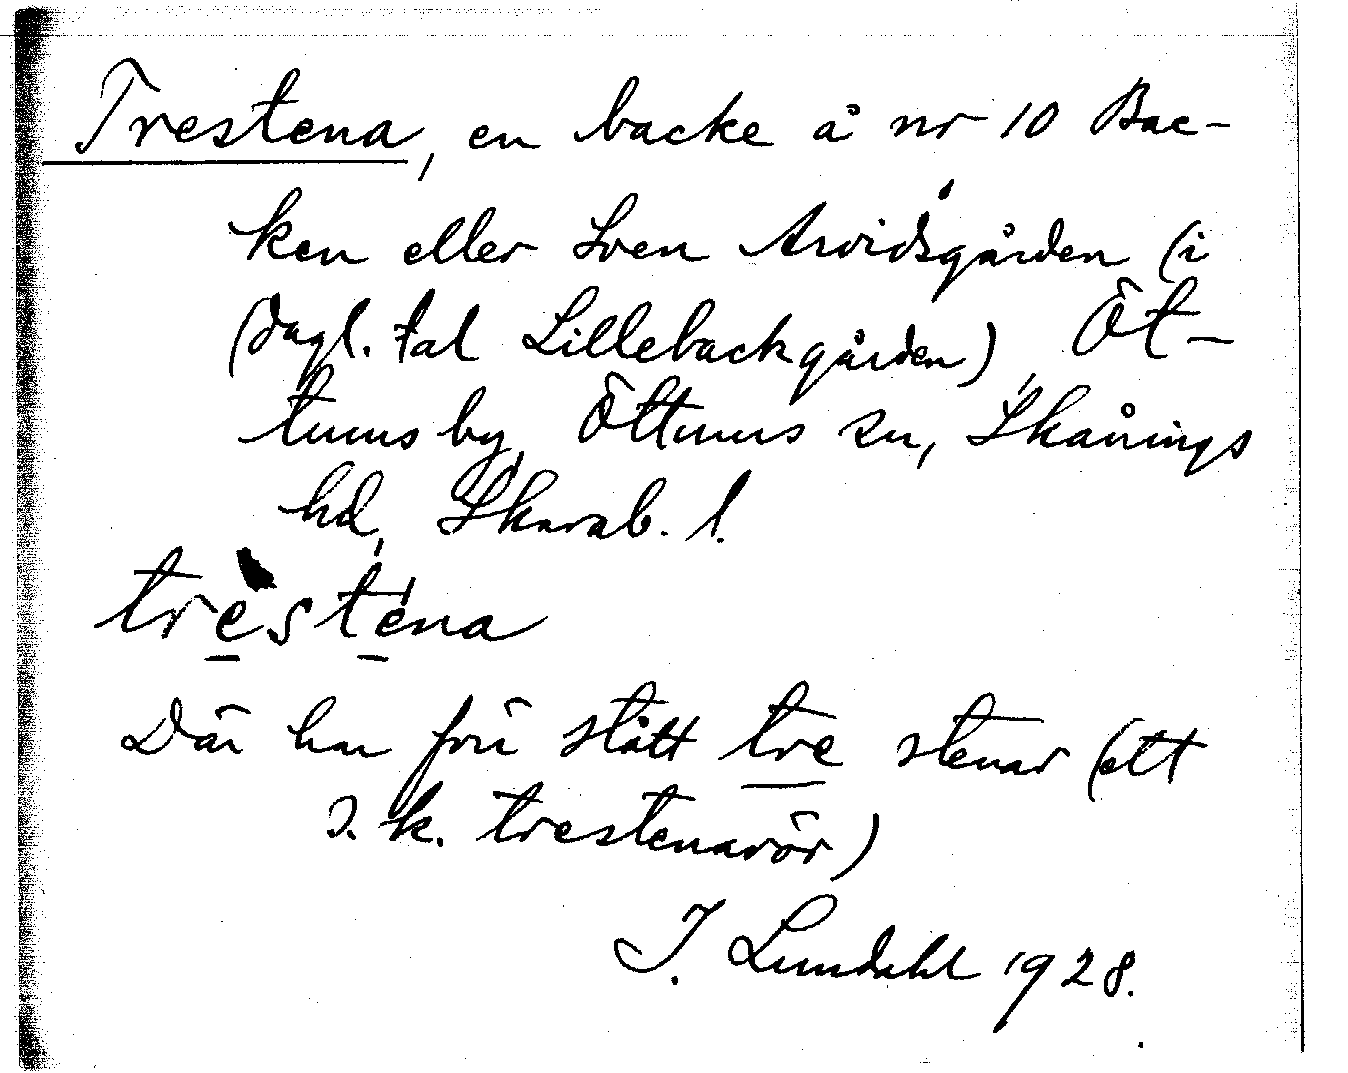 Trestena, en backe å nr 10 Bac-
ken eller Sven Arvidsgården (i
(dagl. tal Lillebackgården), Öt-
tums by, Öttums sn, Skånings
hd, Skarab. l.
trèsténa
Där har förr stått tre stenar (ett
s. k. trestenarör)
I. Lundahl 1928.